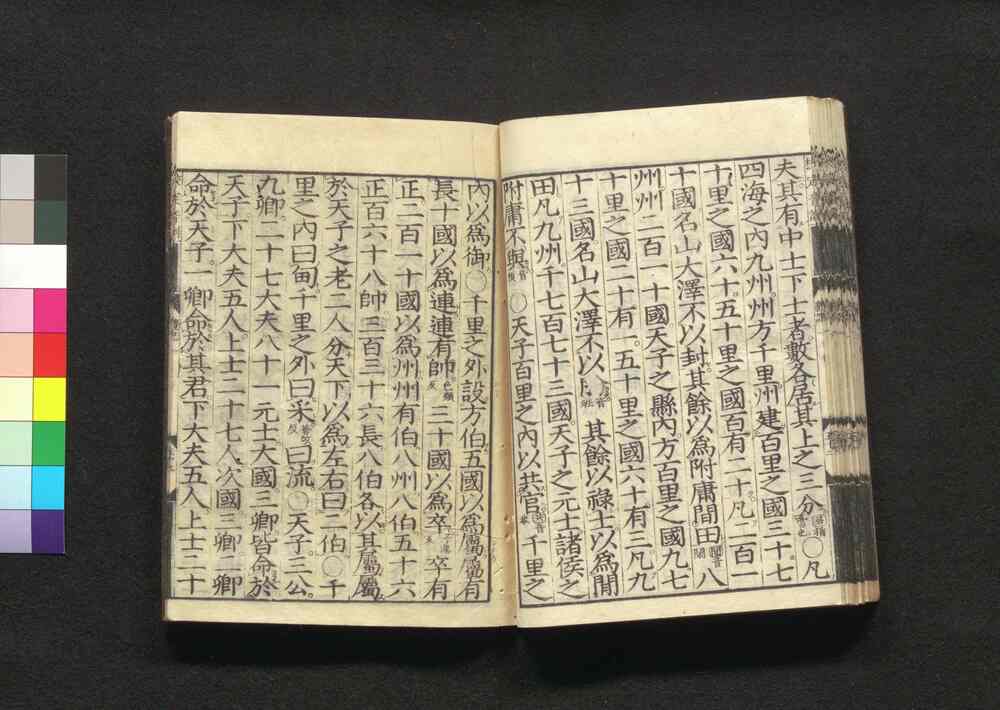 夫其有中士下士者數各居其上之三分○凡
四海之內九州州方千里州建百里之國三十七
十里之國六十五十里之國百有二十凡二百一
十國名山大澤不以封其餘以爲附庸間田八
州州二百一十國天子之縣內方百里之國九七
十里之國二十有一五十里之國六十有三凡九
十三國名山大澤不以其餘以祿士以爲閒
田凡九州千七百七十三國天子之元士諸侯之
附庸不與○天子百里之內以共官千里之
內以爲御○千里之外設方伯五國以爲屬屬有
長十國以爲連連有帥三十國以爲卒卒有
正二百一十國以爲州州有伯八州八伯五十六
正百六十八帥三百三十六長八伯各以其屬屬
於天子之老二人分天下以爲左右曰二伯○千
里之內曰甸千里之外曰采曰流○天子三公
九卿二十七大夫八十一元士大國三卿皆命於
天子下大夫五人上士二十七人次國三卿二卿
命於天子一卿命於其君下大夫五人上士二十